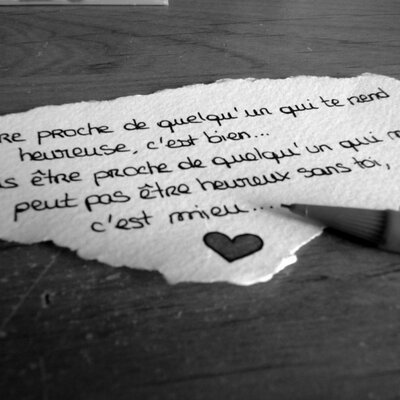 re proche de quelqu'un qui te rend
heureuse, c'est bien...
s être proche de quelqu'un qui
peut pas être heureux sans toi,
c'est mieu...